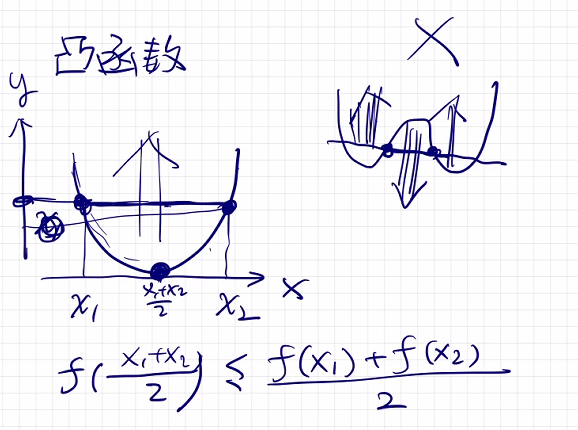 凸函数
X
y
x
x₁
(x₁+x₂)/2
x₂
f((x₁+x₂)/2) ≤ (f(x₁)+f(x₂))/2